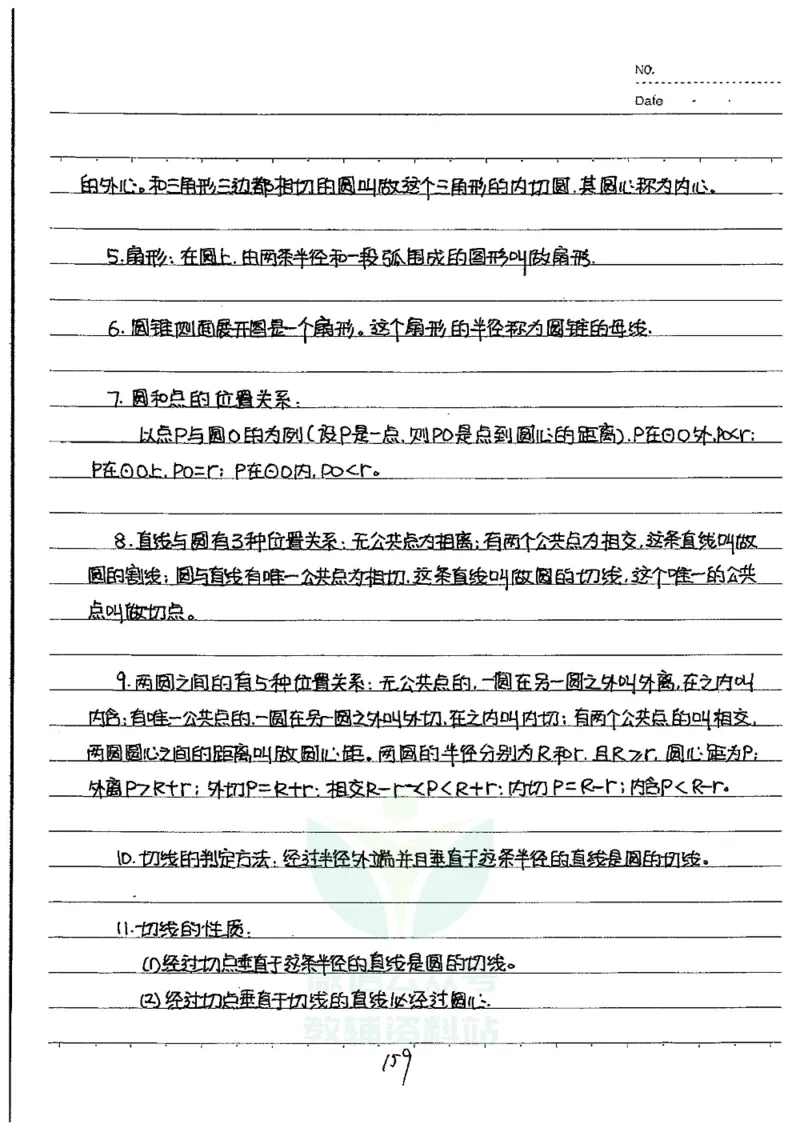 NO.
Date
的外心。和三角形三边都相切的圆叫做这个三角形的内切圆,其圆心称为内心。
5.扇形:在圆上,由两条半径和一段弧围成的图形叫做扇形.
6.圆锥侧面展开图是一个扇形。这个扇形的半径称为圆锥的母线.
7.圆和点的位置关系:
以点P与圆O的为例(设P是一点,则PO是点到圆心的距离).P在⊙O外,PO<r;
P在⊙O上,PO=r;P在⊙O内,PO<r。
8.直线与圆有3种位置关系:无公共点为相离;有两个公共点为相交,这条直线叫做
圆的割线;圆与直线有唯一公共点为相切,这条直线叫做圆的切线,这个唯一的公共
点叫做切点。
9.两圆之间的有5种位置关系:无公共点的,一圆在另一圆之外叫外离,在之内叫
内含;有唯一公共点的,一圆在另一圆之外叫外切,在之内叫内切;有两个公共点的叫相交,
两圆圆心之间的距离叫做圆心距。两圆的半径分别为R和r,且R≥r,圆心距为P:
外离P>R+r;外切P=R+r;相交R-r<P<R+r;内切P=R-r;内含P<R-r。
10.切线的判定方法:经过半径外端并且垂直于这条半径的直线是圆的切线。
11.切线的性质:
(1)经过切点垂直于这条半径的直线是圆的切线。
(2)经过切点垂直于切线的直线必经过圆心.
教辅资料站
159